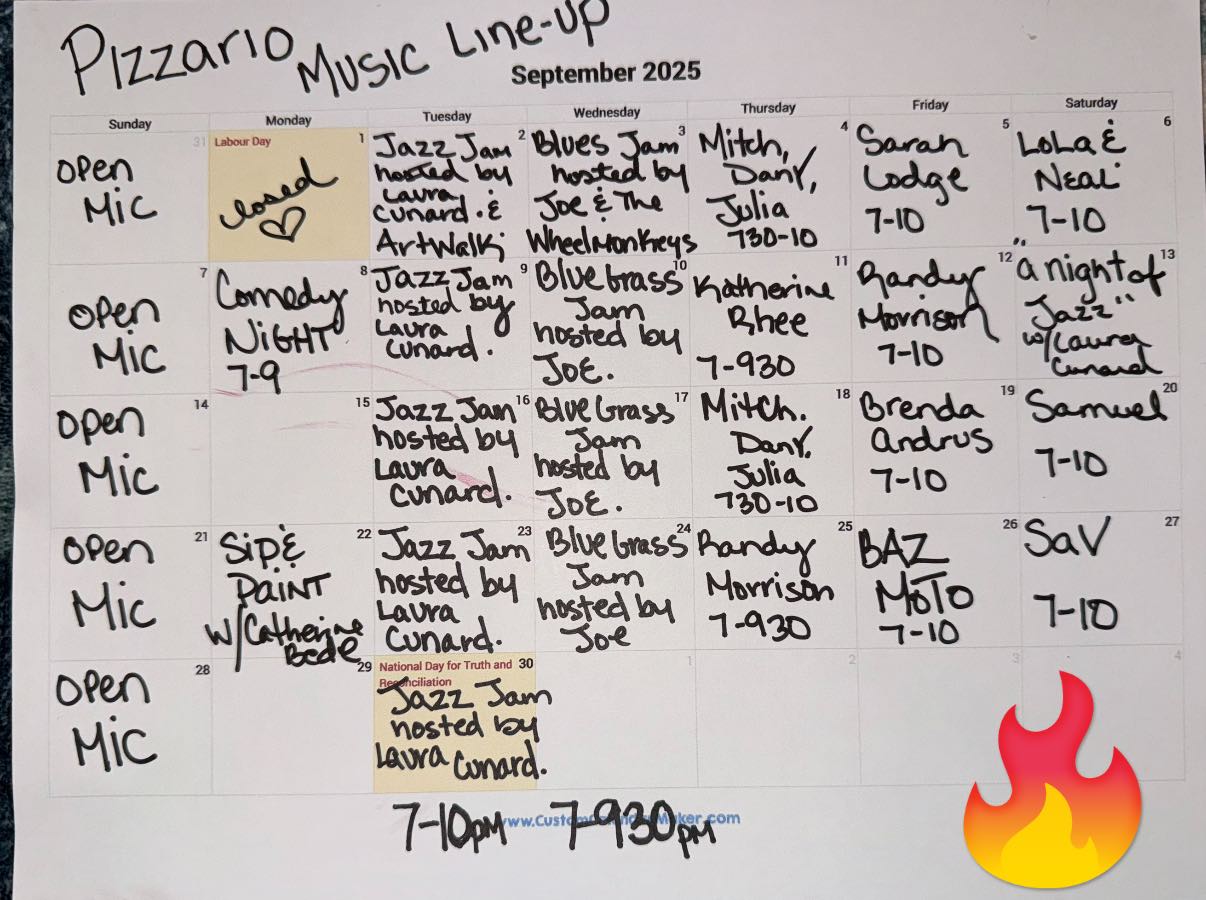 Pizzario Music Line-up
September 2025
Sunday Monday Tuesday Wednesday Thursday Friday Saturday
31
Open
Mic
Labour Day 1
Closed
2
Jazz Jam
hosted by
Laura
Cunard. &
ArtWalk
3
Blues Jam
hosted by
Joe & The
WheelMonkeys
4
Mitch,
Dany,
Julia
730-10
5
Sarah
Lodge
7-10
6
Lola &
Neal
7-10
7
Open
Mic
8
Comedy
Night
7-9
9
Jazz Jam
hosted by
Laura
Cunard.
10
Blue Grass
Jam
hosted by
Joe.
11
Katherine
Rhee
7-930
12
Randy
Morrison
7-10
13
"a night of
Jazz"
w/Laura
Cunard
14
Open
Mic
15
16
Jazz Jam
hosted by
Laura
Cunard.
17
Blue Grass
Jam
hosted by
Joe.
18
Mitch.
Dany,
Julia
730-10
19
Brenda
Andrus
7-10
20
Samuel
7-10
21
Open
Mic
22
Sip &
Paint
w/Catherine
Bede
23
Jazz Jam
hosted by
Laura
Cunard.
24
Blue Grass
Jam
hosted by
Joe
25
Randy
Morrison
7-930
26
BAZ
MOTO
7-10
27
SaV
7-10
28
Open
Mic
29
National Day for Truth and 30
Reconciliation
Jazz Jam
hosted by
Laura Cunard.
1
2
3
4
7-10pm 7-930pm